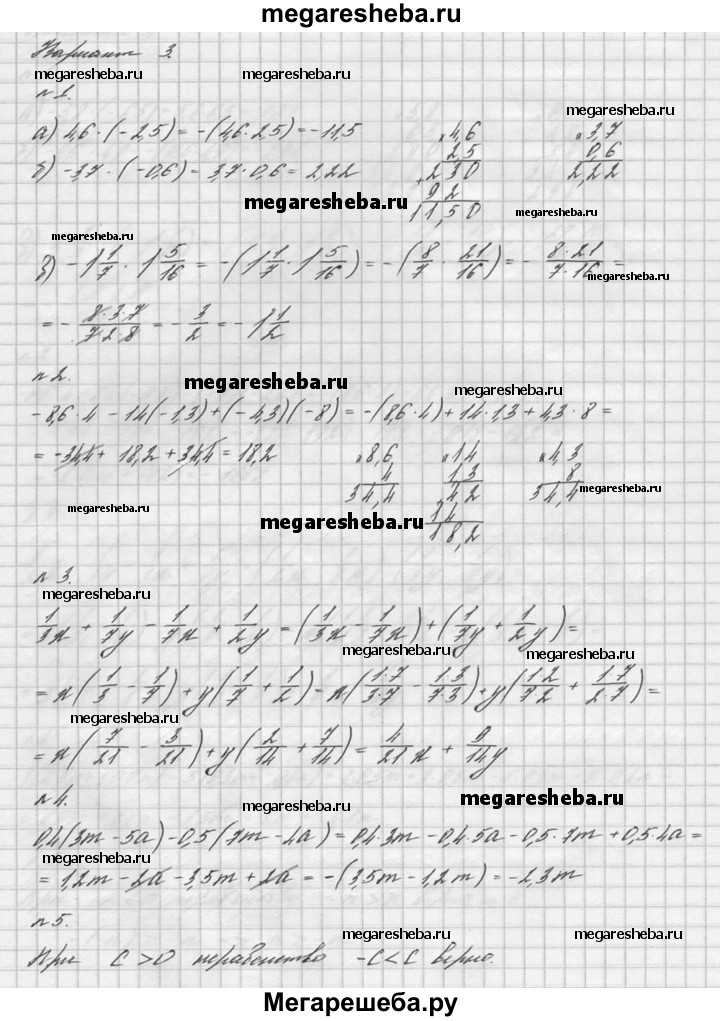 megaresheba.ru
Вариант 3.
megaresheba.ru megaresheba.ru
n 1. megaresheba.ru
а) 4,6 · (-2,5) = -(4,6 · 2,5) = -11,5
× 4,6
2,5
+ 230
92
11,50
× 3,7
0,6
2,22
б) -3,7 · (-0,6) = 3,7 · 0,6 = 2,22
megaresheba.ru megaresheba.ru
megaresheba.ru
в) -1 1/7 · 1 5/16 = -(1 1/7 · 1 5/16) = -(8/7 · 21/16) = - 8·21/7·16 =
megaresheba.ru
= - 8·3·7/7·2·8 = - 3/2 = -1 1/2
n 2. megaresheba.ru megaresheba.ru
-8,6 · 4 - 14(-1,3) + (-4,3)(-8) = -(8,6 · 4) + 14 · 1,3 + 4,3 · 8 =
= -34,4 + 18,2 + 34,4 = 18,2
× 8,6
4
34,4
× 14
1,3
42
14
18,2
× 4,3
8
34,4
megaresheba.ru
megaresheba.ru megaresheba.ru
n 3.
megaresheba.ru
1/3x + 1/7y - 1/7x + 1/2y = (1/3x - 1/7x) + (1/7y + 1/2y) =
megaresheba.ru megaresheba.ru
= x(1/3 - 1/7) + y(1/7 + 1/2) = x(1·7/3·7 - 1·3/7·3) + y(1·2/7·2 + 1·7/2·7) =
megaresheba.ru megaresheba.ru
= x(7/21 - 3/21) + y(2/14 + 7/14) = 4/21x + 9/14y
n 4. megaresheba.ru megaresheba.ru
0,4(3m - 5a) - 0,5(7m - 4a) = 0,4 · 3m - 0,4 · 5a - 0,5 · 7m + 0,5 · 4a =
megaresheba.ru megaresheba.ru
= 1,2m - 2a - 3,5m + 2a = -(3,5m - 1,2m) = -2,3m
n 5.
megaresheba.ru megaresheba.ru
При c > 0 неравенство -c < c верно.
Мегарешеба.ру